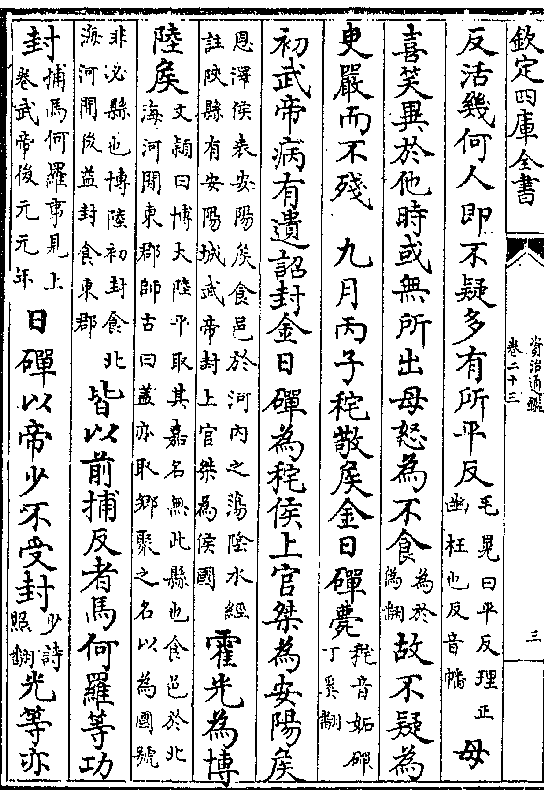 欽定四庫全書
資治通鑑
卷二十三
三
反活幾何人即不疑多有所平反毛晃曰平反理正幽枉也反音幡母
喜笑異於他時或無所出母怒為不食為於偽翻故不疑為
吏嚴而不殘 九月丙子秺敬矦金日磾薨秺音妬磾丁奚翻
初武帝病有遺詔封金日磾為秺侯上官桀為安陽矦
恩澤侯表安陽矦食邑於河内之蕩陰水經註陜縣有安陽城武帝封上官桀為侯國霍光為博
陸矦文頴曰博大陸平取其嘉名無此縣也食邑於北海河間東郡師古曰蓋亦取鄉聚之名以為國號
非必縣也博陸初封食北海河間後益封食東郡皆以前捕反者馬何羅等功
封捕馬何羅事見上卷武帝後元元年日磾以帝少不受封少詩照翻光等亦